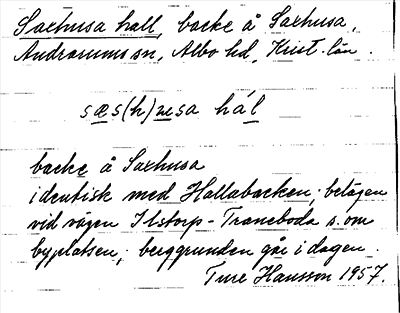 Saxhusa hall, backe å Saxhusa,
Andrarums sn, Albo hd, Krist. län.
sæs(h)ʉsa hál
backe å Saxhusa
identisk med Hallabacken; belägen
vid vägen Ilstorp - Traneboda s. om
byplatsen; berggrunden går i dagen.
Ture Hansson 1957.